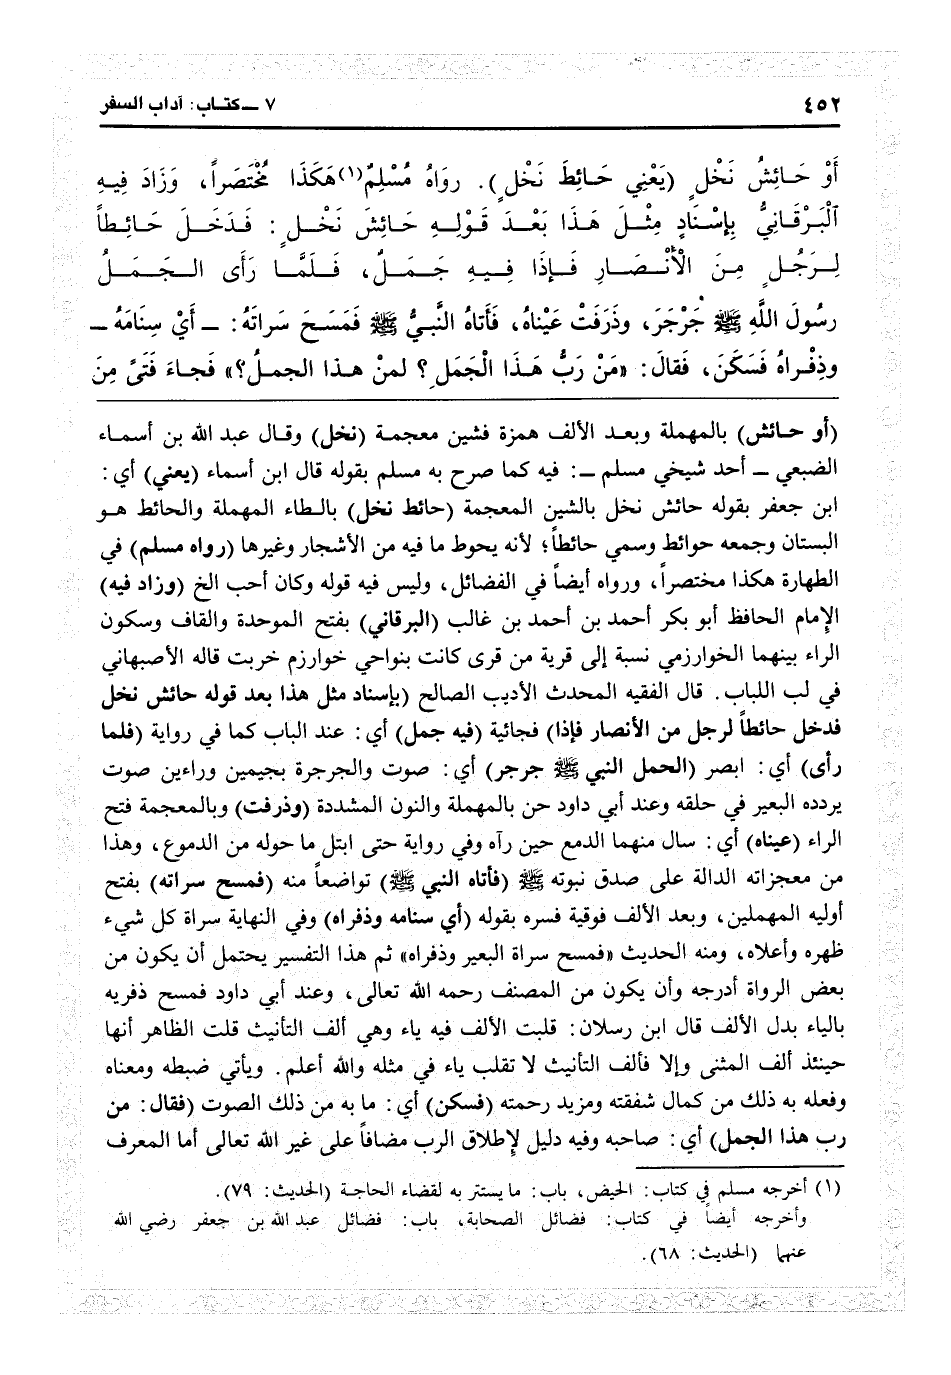 ٤٥٢
٧ ــ كتـاب: آداب السفر
أَوْ حَـائِشُ نَخْلٍ (يَعْنِي حَـائِطَ نَخْلٍ). رواهُ مُسْلِمٌ(١) هَكَذَا مُخْتَصَراً، وَزَادَ فِيهِ
الْبَرْقَانِيُّ بِإسْنَادٍ مِثْلَ هَذَا بَعْدَ قَوْلِهِ حَائِشَ نَخْلٍ: فَدَخَلَ حَائِطاً
لِرَجُلٍ مِنَ الْأَنْصَارِ فَإذَا فِيهِ جَمَلٌ، فَلَمَّا رَأَى الجَمَلُ
رسُولَ اللَّهِ ﷺ جَرْجَرَ، وذَرَفَتْ عَيْنَاهُ، فَأَتَاهُ النَّبِيُّ ﷺ فَمَسَحَ سَراتَهُ: ــ أَيْ سِنَامَهُ ــ
وذِفْراهُ فَسَكَنَ، فَقالَ: «مَنْ رَبُّ هَذَا الْجَمَلِ؟ لمنْ هذا الجملُ؟» فَجاءَ فَتًى مِنَ
(أو حائش) بالمهملة وبعد الألف همزة فشين معجمة (نخل) وقال عبد الله بن أسماء
الضبعي ــ أحد شيخي مسلم ــ: فيه كما صرح به مسلم بقوله قال ابن أسماء (يعني) أي:
ابن جعفر بقوله حائش نخل بالشين المعجمة (حائط نخل) بالطاء المهملة والحائط هو
البستان وجمعه حوائط وسمي حائطاً؛ لأنه يحوط ما فيه من الأشجار وغيرها (رواه مسلم) في
الطهارة هكذا مختصراً، ورواه أيضاً في الفضائل، وليس فيه قوله وكان أحب الخ (وزاد فيه)
الإمام الحافظ أبو بكر أحمد بن أحمد بن غالب (البرقاني) بفتح الموحدة والقاف وسكون
الراء بينهما الخوارزمي نسبة إلى قرية من قرى كانت بنواحي خوارزم خربت قاله الأصبهاني
في لب اللباب. قال الفقيه المحدث الأديب الصالح (بإسناد مثل هذا بعد قوله حائش نخل
فدخل حائطاً لرجل من الأنصار فإذا) فجائية (فيه جمل) أي: عند الباب كما في رواية (فلما
رأى) أي: ابصر (الحمل النبي ﷺ جرجر) أي: صوت والجرجرة بجيمين وراءين صوت
يردده البعير في حلقه وعند أبي داود حن بالمهملة والنون المشددة (وذرفت) وبالمعجمة فتح
الراء (عيناه) أي: سال منهما الدمع حين رآه وفي رواية حتى ابتل ما حوله من الدموع، وهذا
من معجزاته الدالة على صدق نبوته ﷺ (فأتاه النبي ﷺ) تواضعاً منه (فمسح سراته) بفتح
أوليه المهملين، وبعد الألف فوقية فسره بقوله (أي سنامه وذفراه) وفي النهاية سراة كل شيء
ظهره وأعلاه، ومنه الحديث «فمسح سراة البعير وذفراه» ثم هذا التفسير يحتمل أن يكون من
بعض الرواة أدرجه وأن يكون من المصنف رحمه الله تعالى، وعند أبي داود فمسح ذفريه
بالياء بدل الألف قال ابن رسلان: قلبت الألف فيه ياء وهي ألف التأنيث قلت الظاهر أنها
حينئذ ألف المثنى وإلا فألف التأنيث لا تقلب ياء في مثله والله أعلم. ويأتي ضبطه ومعناه
وفعله به ذلك من كمال شفقته ومزيد رحمته (فسكن) أي: ما به من ذلك الصوت (فقال: من
رب هذا الجمل) أي: صاحبه وفيه دليل لإطلاق الرب مضافاً على غير الله تعالى أما المعرف
(١) أخرجه مسلم في كتاب: الحيض، باب: ما يستتر به لقضاء الحاجة (الحديث: ٧٩).
وأخرجه أيضاً في كتاب: فضائل الصحابة، باب: فضائل عبد الله بن جعفر رضي الله
عنهما (الحديث: ٦٨).